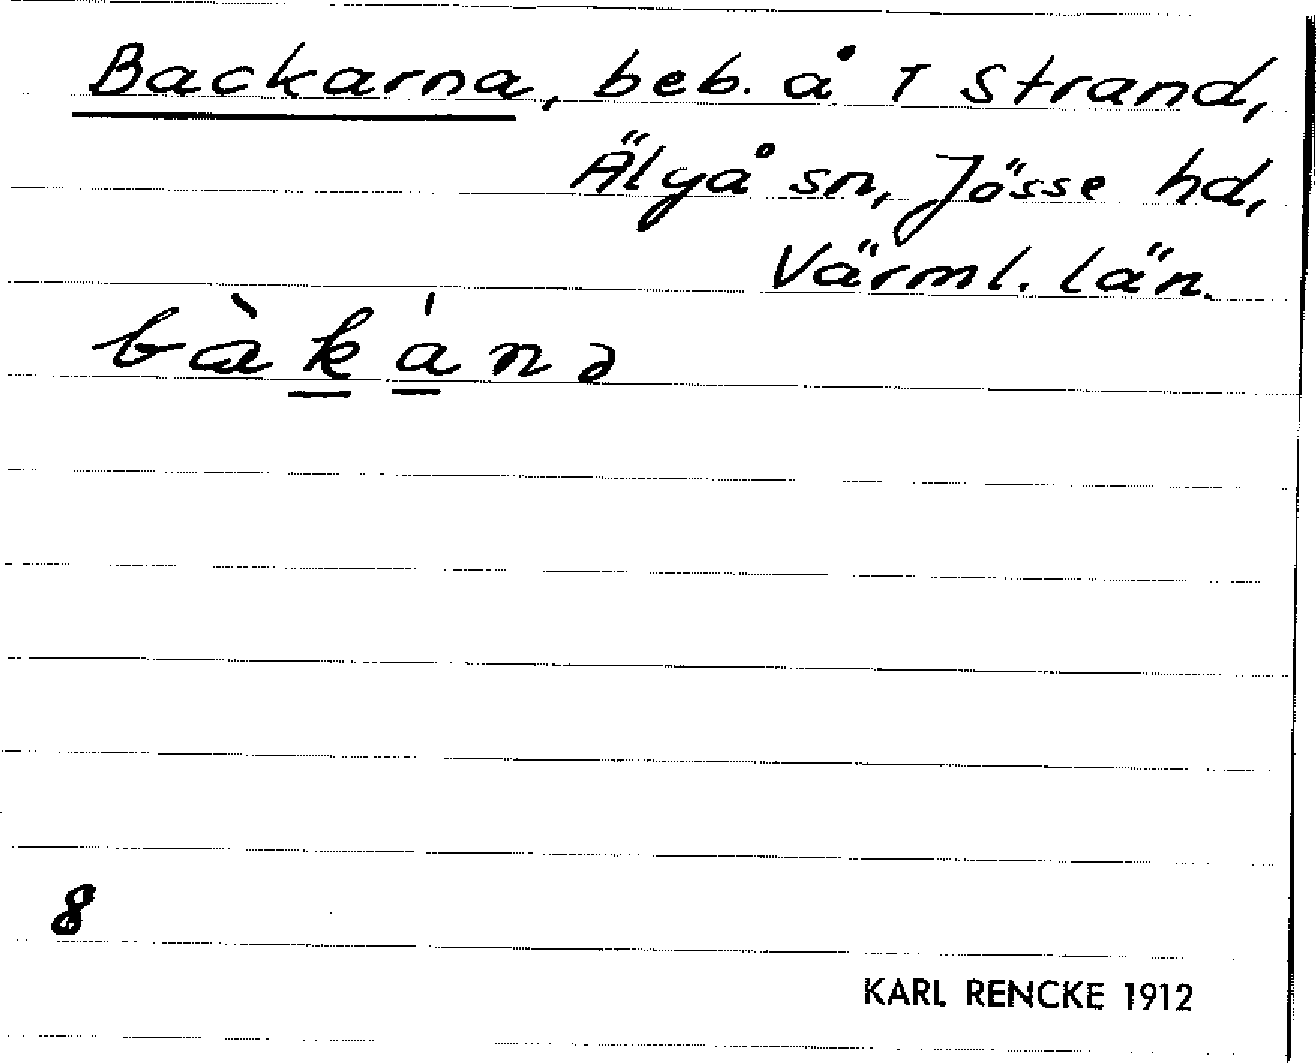 Backarna, beb. å T Strand,
Älgå sn, Jösse hd,
Värml. län.
bàkánə
8
KARL RENCKE 1912